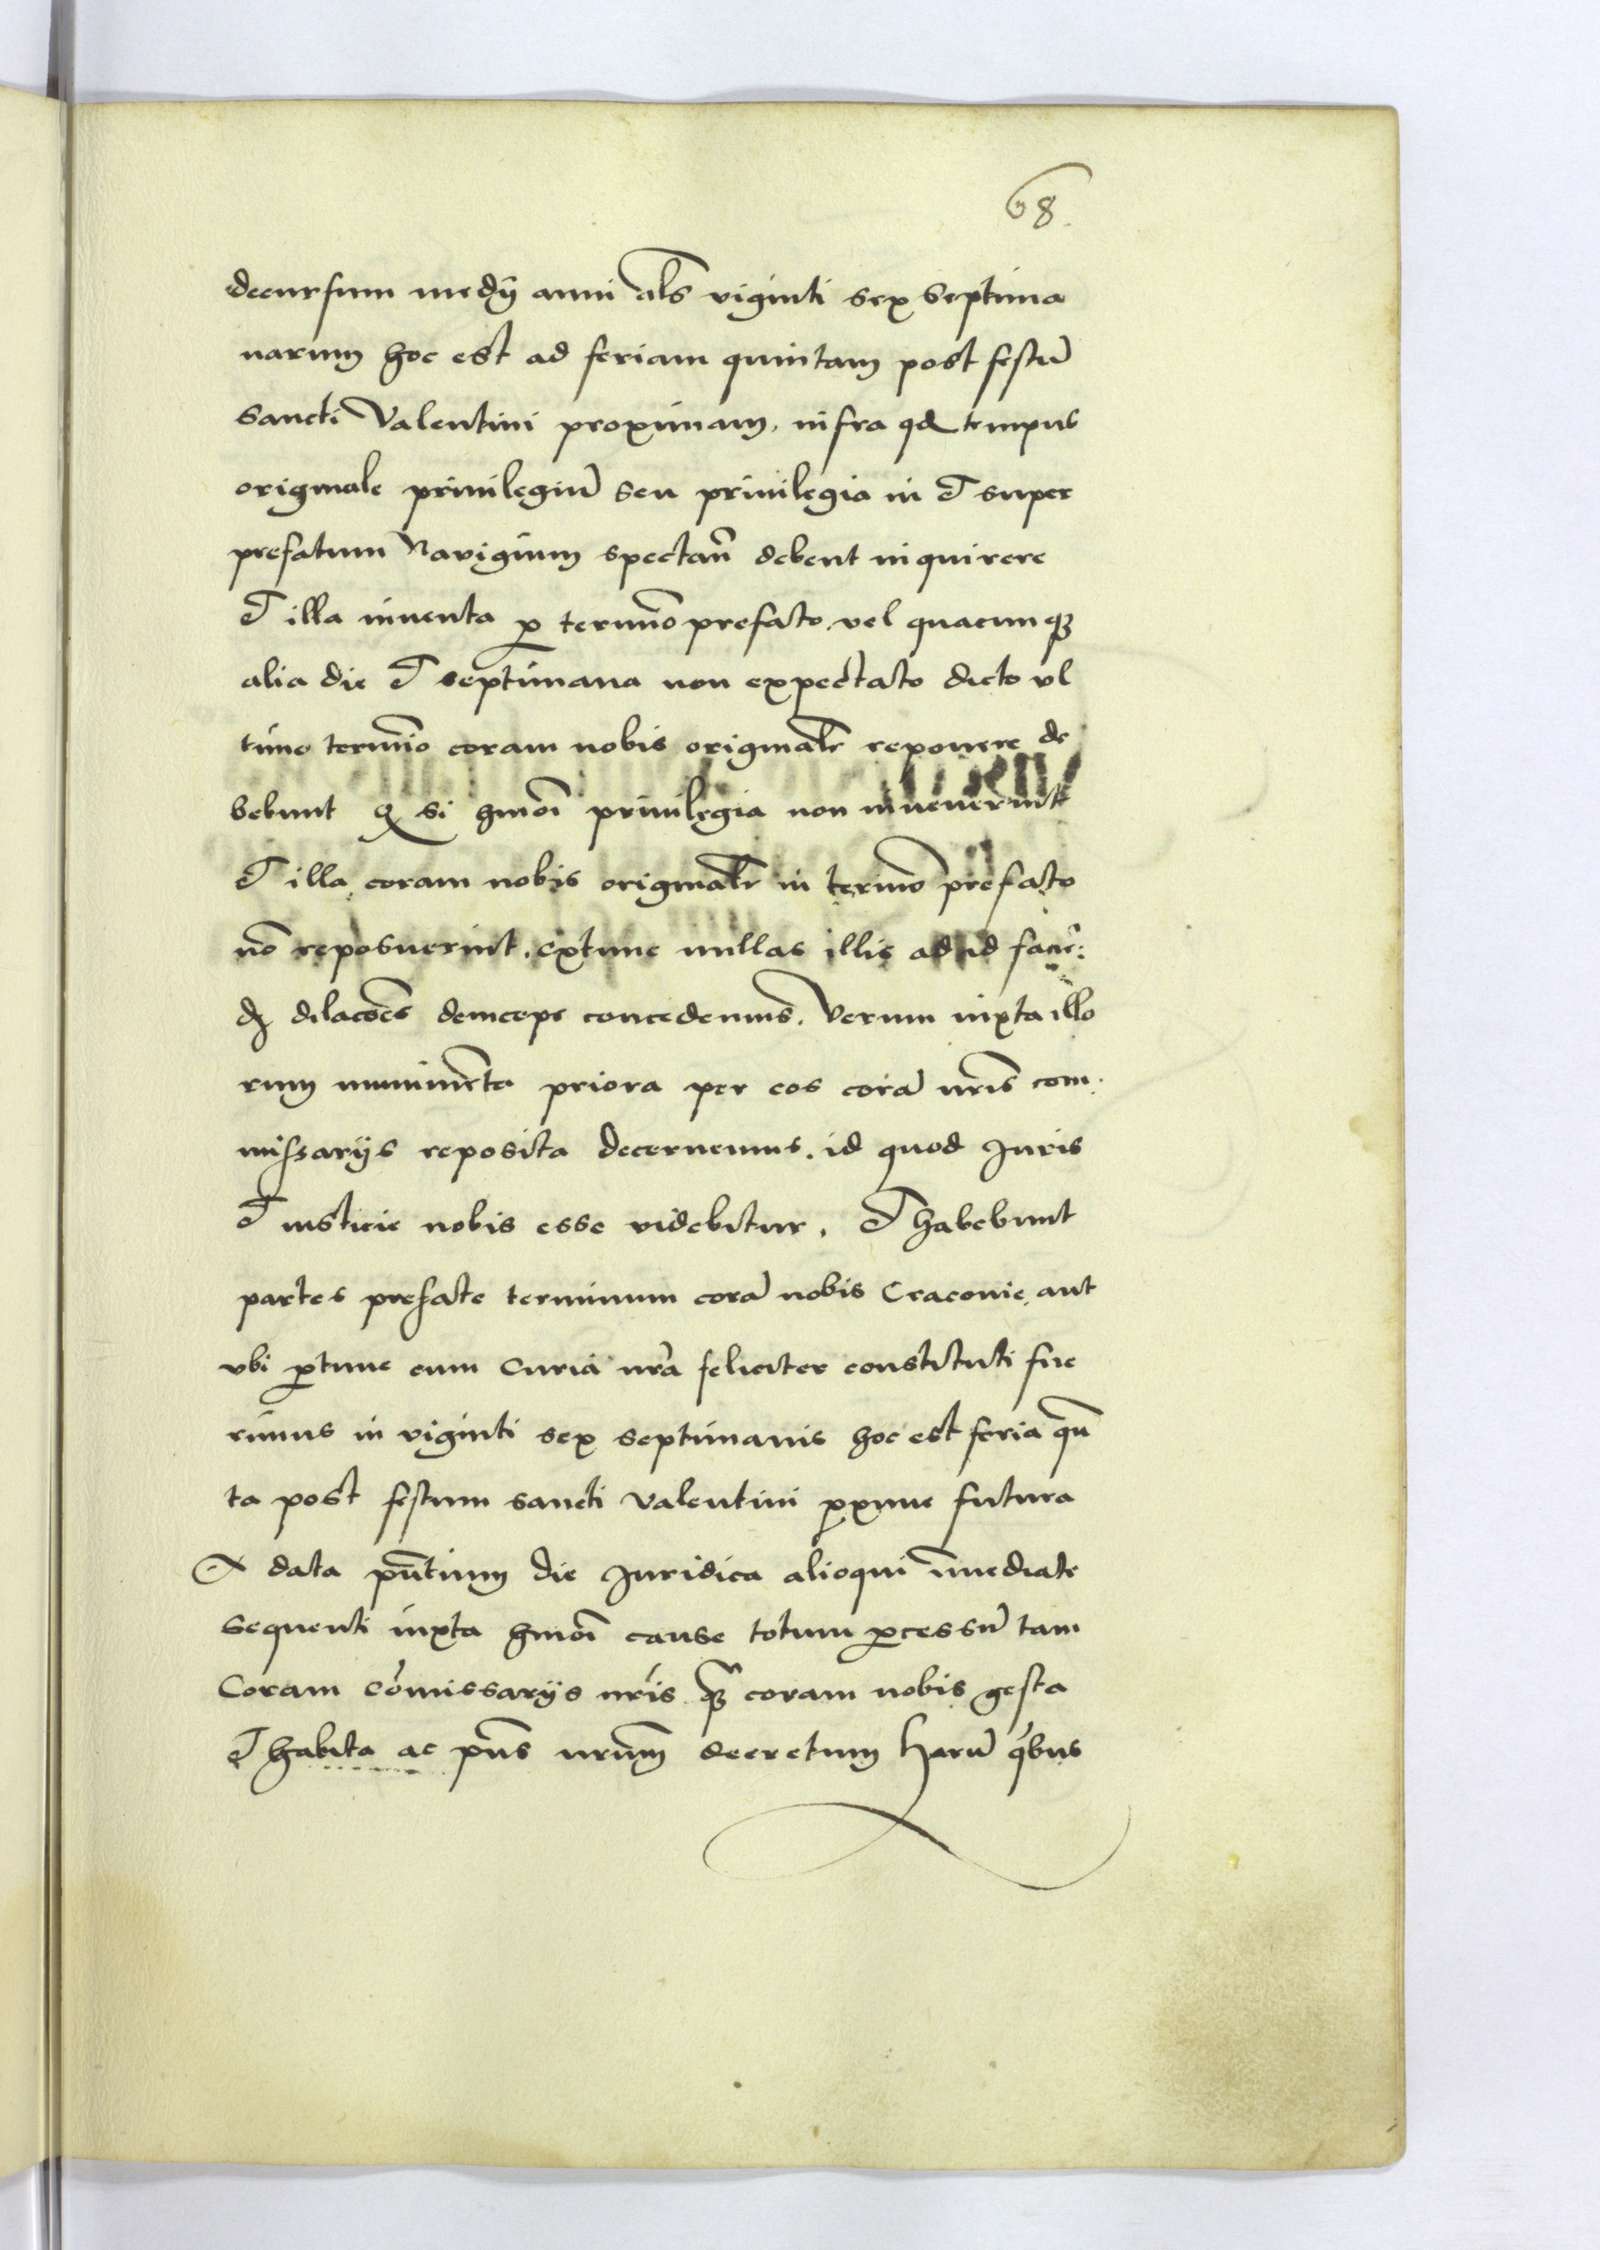 68.
decursum medij anni als viginti sex septima
narum hoc est ad feriam quintam post festū
Sancti Valentini proximam, infra qd tempus
originale priuilegiū seu priuilegia in et super
prefatum Navigium spectañ debent inquirere
et illa inuenta p termino prefato, vel quacunq3
alia die et septimana non expectato dicto vl
timo termīo coram nobis originalr reponere de
bebunt q si hmōi priuilegia non inuenerint
et illa coram nobis originalr in termīo prefato
nō reposuerint, extunc nullas illis ad id
dilacōes deinceps concedemus. Verum iuxta illo
rum munimēta priora per eos corā nrīs com
missarijs reposita decernemus, id quod Juris
et iusticie nobis esse videbitur, et habebunt
partes prefate terminum corā nobis Cracouie, aut
vbi ptunc cum Curia nrā feliciter constituti fue
rimus in viginti sex septimanis hoc est feria qūi
ta post festum sancti Valentini pxime futura
A data pñtium die Juridica alioqui īmediate
sequenti iuxta hmōi cause totum pcessū tam
Coram cōmissarijs nrīs q3 coram nobis gesta
et habita ac pñs nrūm decretum harū qibus